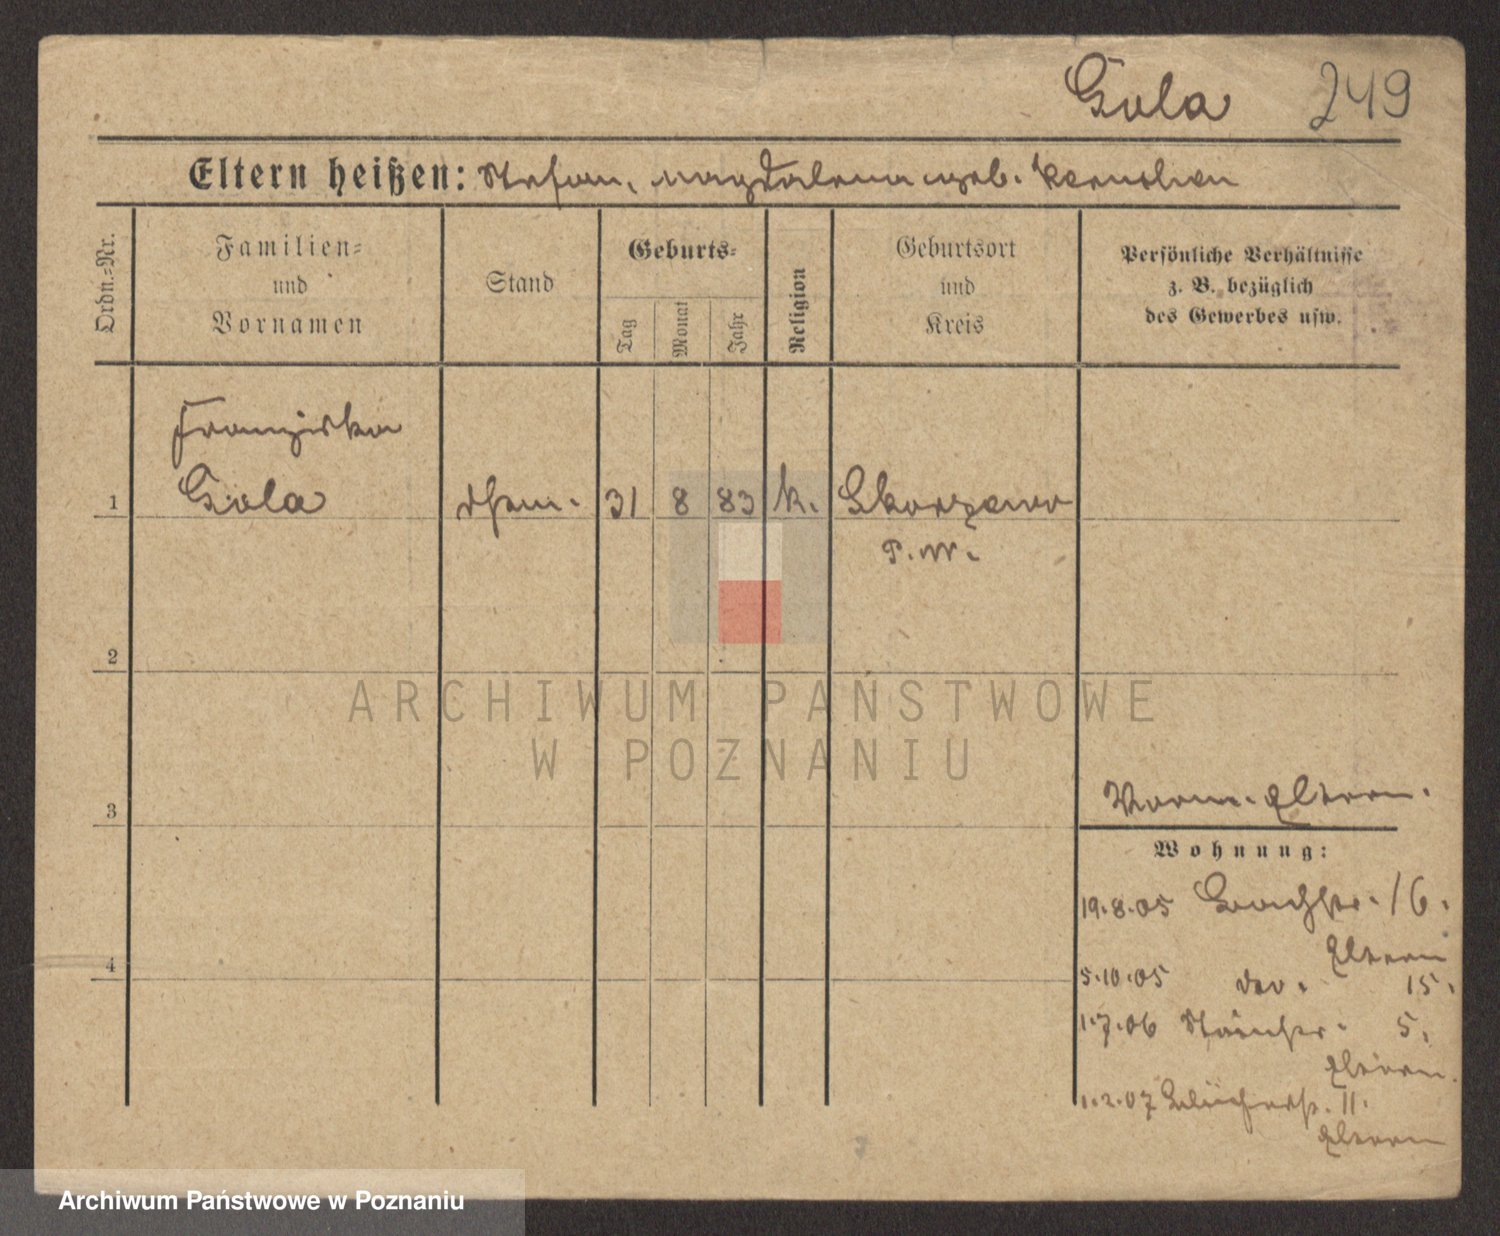 Gola 249
Eltern heißen: Stefan, Magdalena geb.
Ordn.-Nr.
Familien-
und
Vornamen
Stand
Geburts-
Tag
Monat
Jahr
Religion
Geburtsort
und
Kreis
Persönliche Verhältnisse
z. B. bezüglich
des Gewerbes usw.
Franziska
1 Gola 31 8 83 k. Skorzewo
P.W.
2
ARCHIWUM PAŃSTWOWE
W POZNANIU
3 Eltern.
Wohnung:
19.8.05 Bachstr. 16.
Eltern
4
5.10.05 15.
1.7.06 5.
Eltern.
1.2.07 Blücherstr. 11.
Eltern
Archiwum Państwowe w Poznaniu